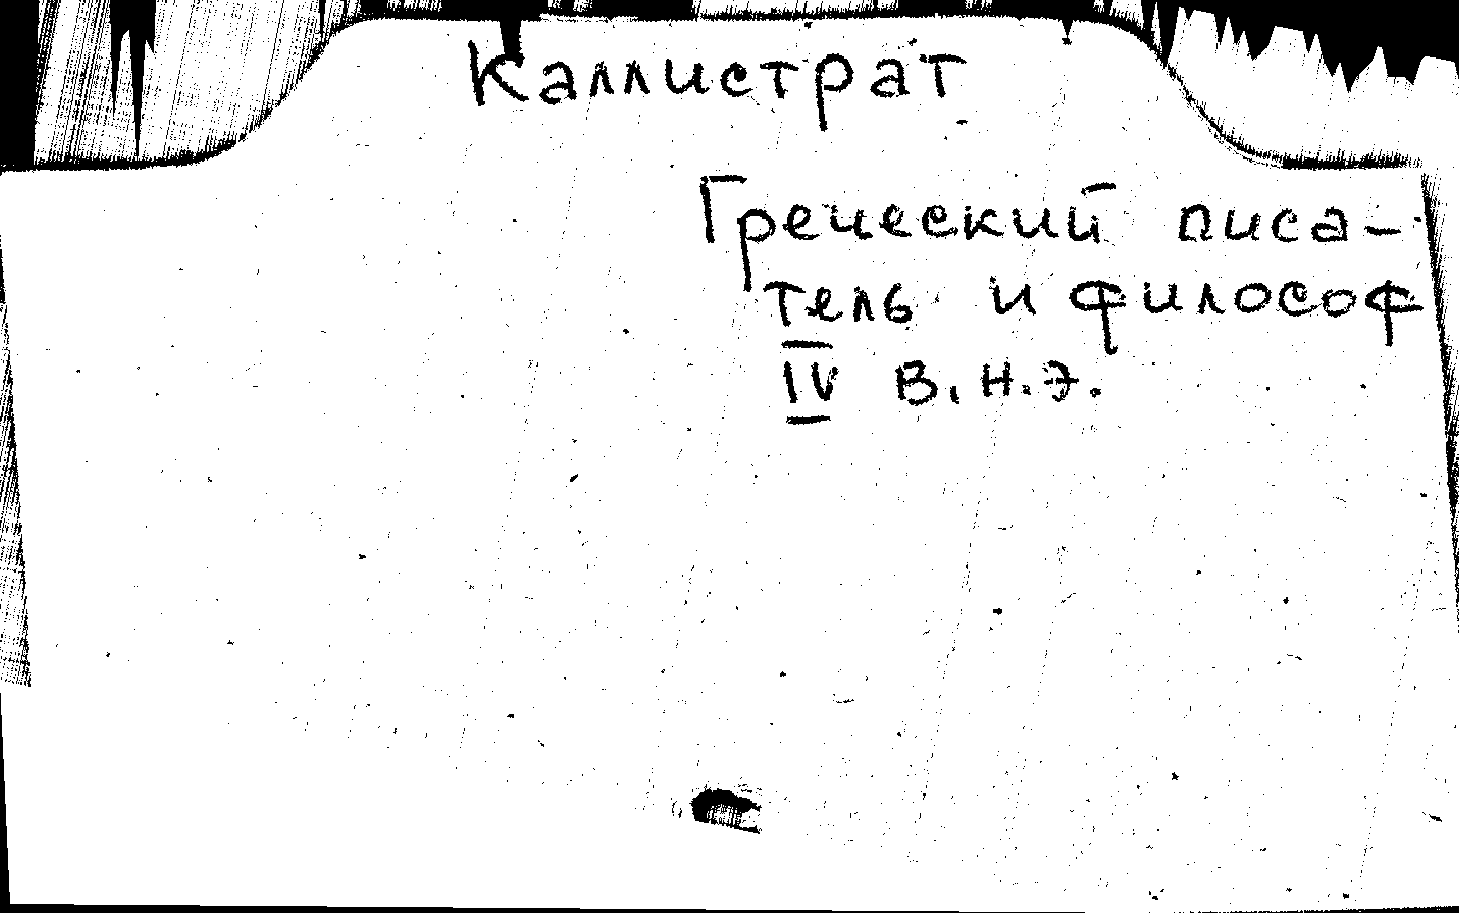 Каллистрат
Греческий писа-
тель и философ
IV в. н.э.